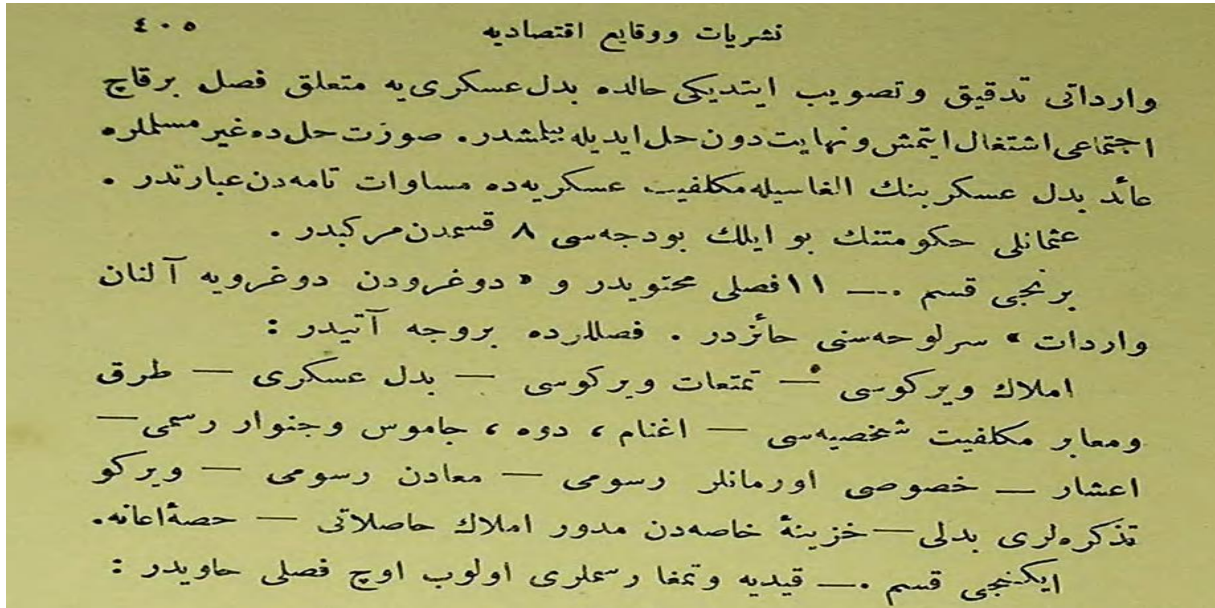 نشریات ووقایع اقتصادیه ٤٠٥
وارداتی تدقیق وتصویب ایتدیکی حالده بدل عسکری‌یه متعلق فصل برقاچ
اجتماعی اشتغال ایتمش ونهایت دون حل ایدیله بیلمشدر. صورت حل ده غیر مسلملره
عائد بدل عسکرینك الغاسیله مکلفیت عسکریه‌ده مساوات تامه‌دن عبارتدر .
عثمانلی حکومتنك بو ایلك بودجه‌سی ٨ قسمدن مرکبدر .
برنجی قسم .— ١١ فصلی محتویدر و « دوغرودن دوغرویه آلنان
واردات » سرلوحه‌سنی حائزدر . فصللرده بروجه آتیدر :
املاك ویرکوسی — تمتعات ویرکوسی — بدل عسکری — طرق
ومعابر مکلفیت شخصیه‌سی — اغنام ، دوه ، جاموس وجنوار رسمی —
اعشار — خصوصی اورمانلر رسومی — معادن رسومی — ویرکو
تذکره‌لری بدلی — خزینۀ خاصه‌دن مدور املاك حاصلاتی — حصۀ اعانه.
ایکنجی قسم .— قیدیه وتمغا رسملری اولوب اوچ فصلی حاویدر :